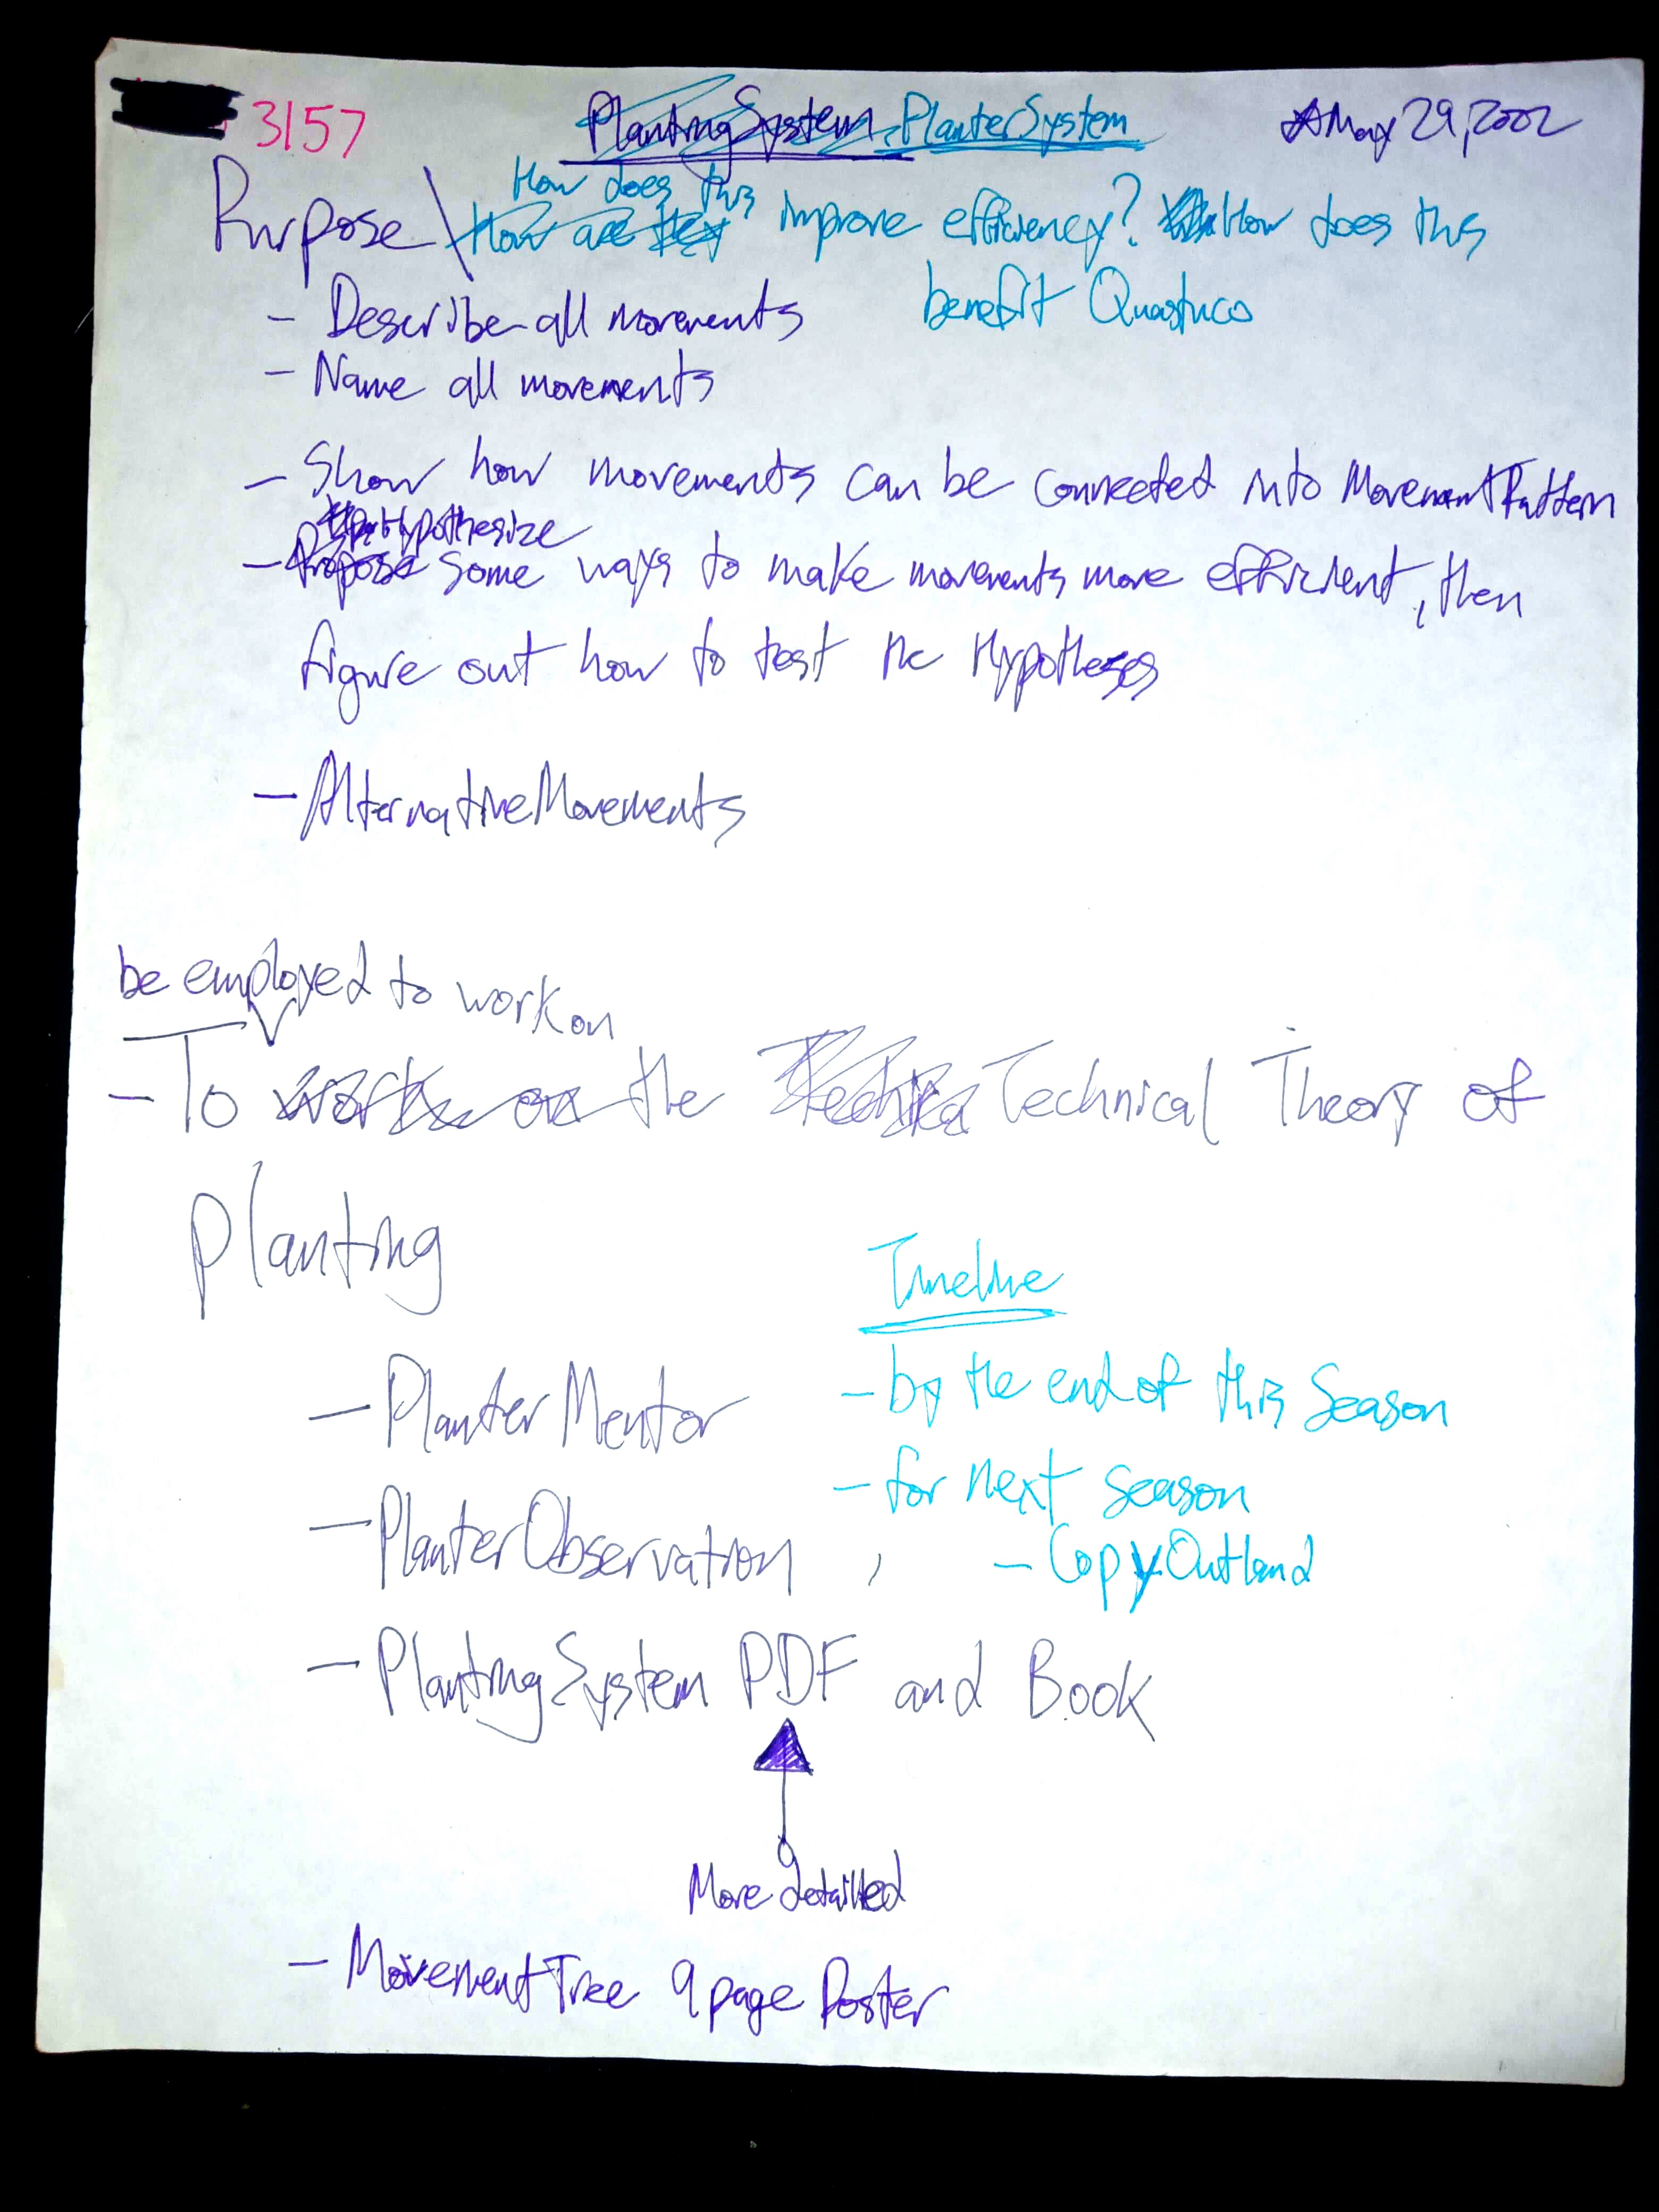 3157
PlantingSystem PlanterSystem
May 29, 2002
How does this
Purpose \ How are they improve efficiency? How does this
benefit Quastuco
- Describe all movements
- Name all movements
- Show how movements can be connected into MovementPattern
Hypothesize
- Propose some ways to make movements more efficient, then
figure out how to test the Hypotheses
- AlternativeMovements
be employed to work on
- To work on the Technical Theory of
Planting
- PlanterMentor
- PlanterObservation
- PlantingSystem PDF and Book
More detailled
- MovementTree 9 page Poster
Timeline
- by the end of this Season
- for next season
- CopyOutland